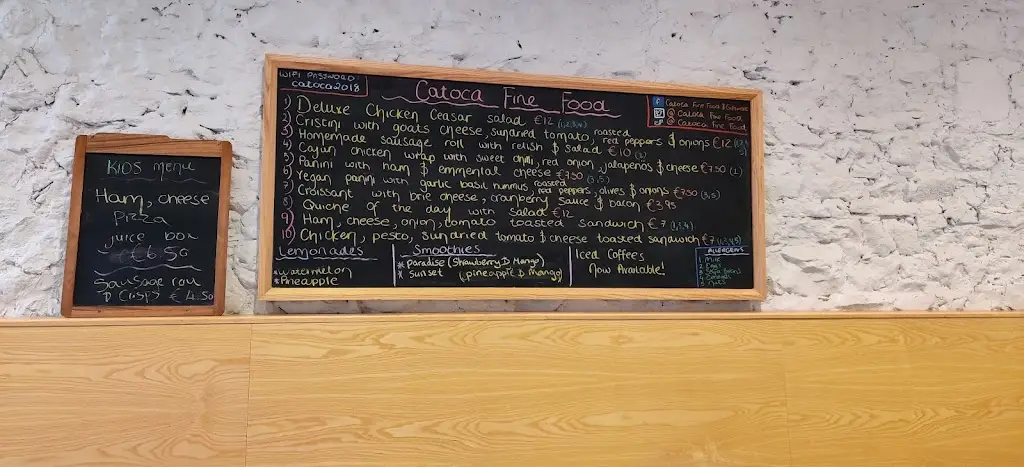 KIDS MENU
Ham, cheese
Pizza
juice box
€6.50
Sausage roll
& Crisps €4.50
WIFI PASSWORD:
catoca2018
Catoca Fine Food
Catoca Fine Food &
@ Catoca Fine Food
@ Catoca Fine Food
1) Deluxe Chicken Ceasar salad €12
2) Cristini with goats cheese, sundried tomato, roasted red peppers & onions €12
3) Homemade sausage roll with relish & salad €10
4) Cajun chicken wrap with sweet chilli, red onion, jalapenos & cheese €7.50 (1)
5) Panini with ham & emmental cheese €7.50
6) Vegan panini with garlic basil hummus, roasted red peppers, olives & onions €7.50 (3,5)
7) Croissant with brie cheese, cranberry sauce & bacon €8.95
8) Quiche of the day with salad €12
9) Ham, cheese, onion, tomato toasted sandwich €7 (1,3,4)
10) Chicken, pesto, sundried tomato & cheese toasted sandwich €7
Lemonades
*Watermelon
*Pineapple
Smoothies
* Paradise (Strawberry & Mango)
* Sunset (pineapple & Mango)
Iced Coffees
Now Available!
ALLERGENS
1 Milk
2 Eggs
5 Nuts